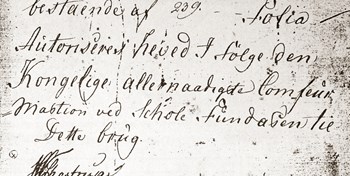 bestaaende af 239. Folia
Autoriseres herved I følge den
Kongelige allernaadigste Comfeur
mastion ved Schole Fundasen tie
Dette brug